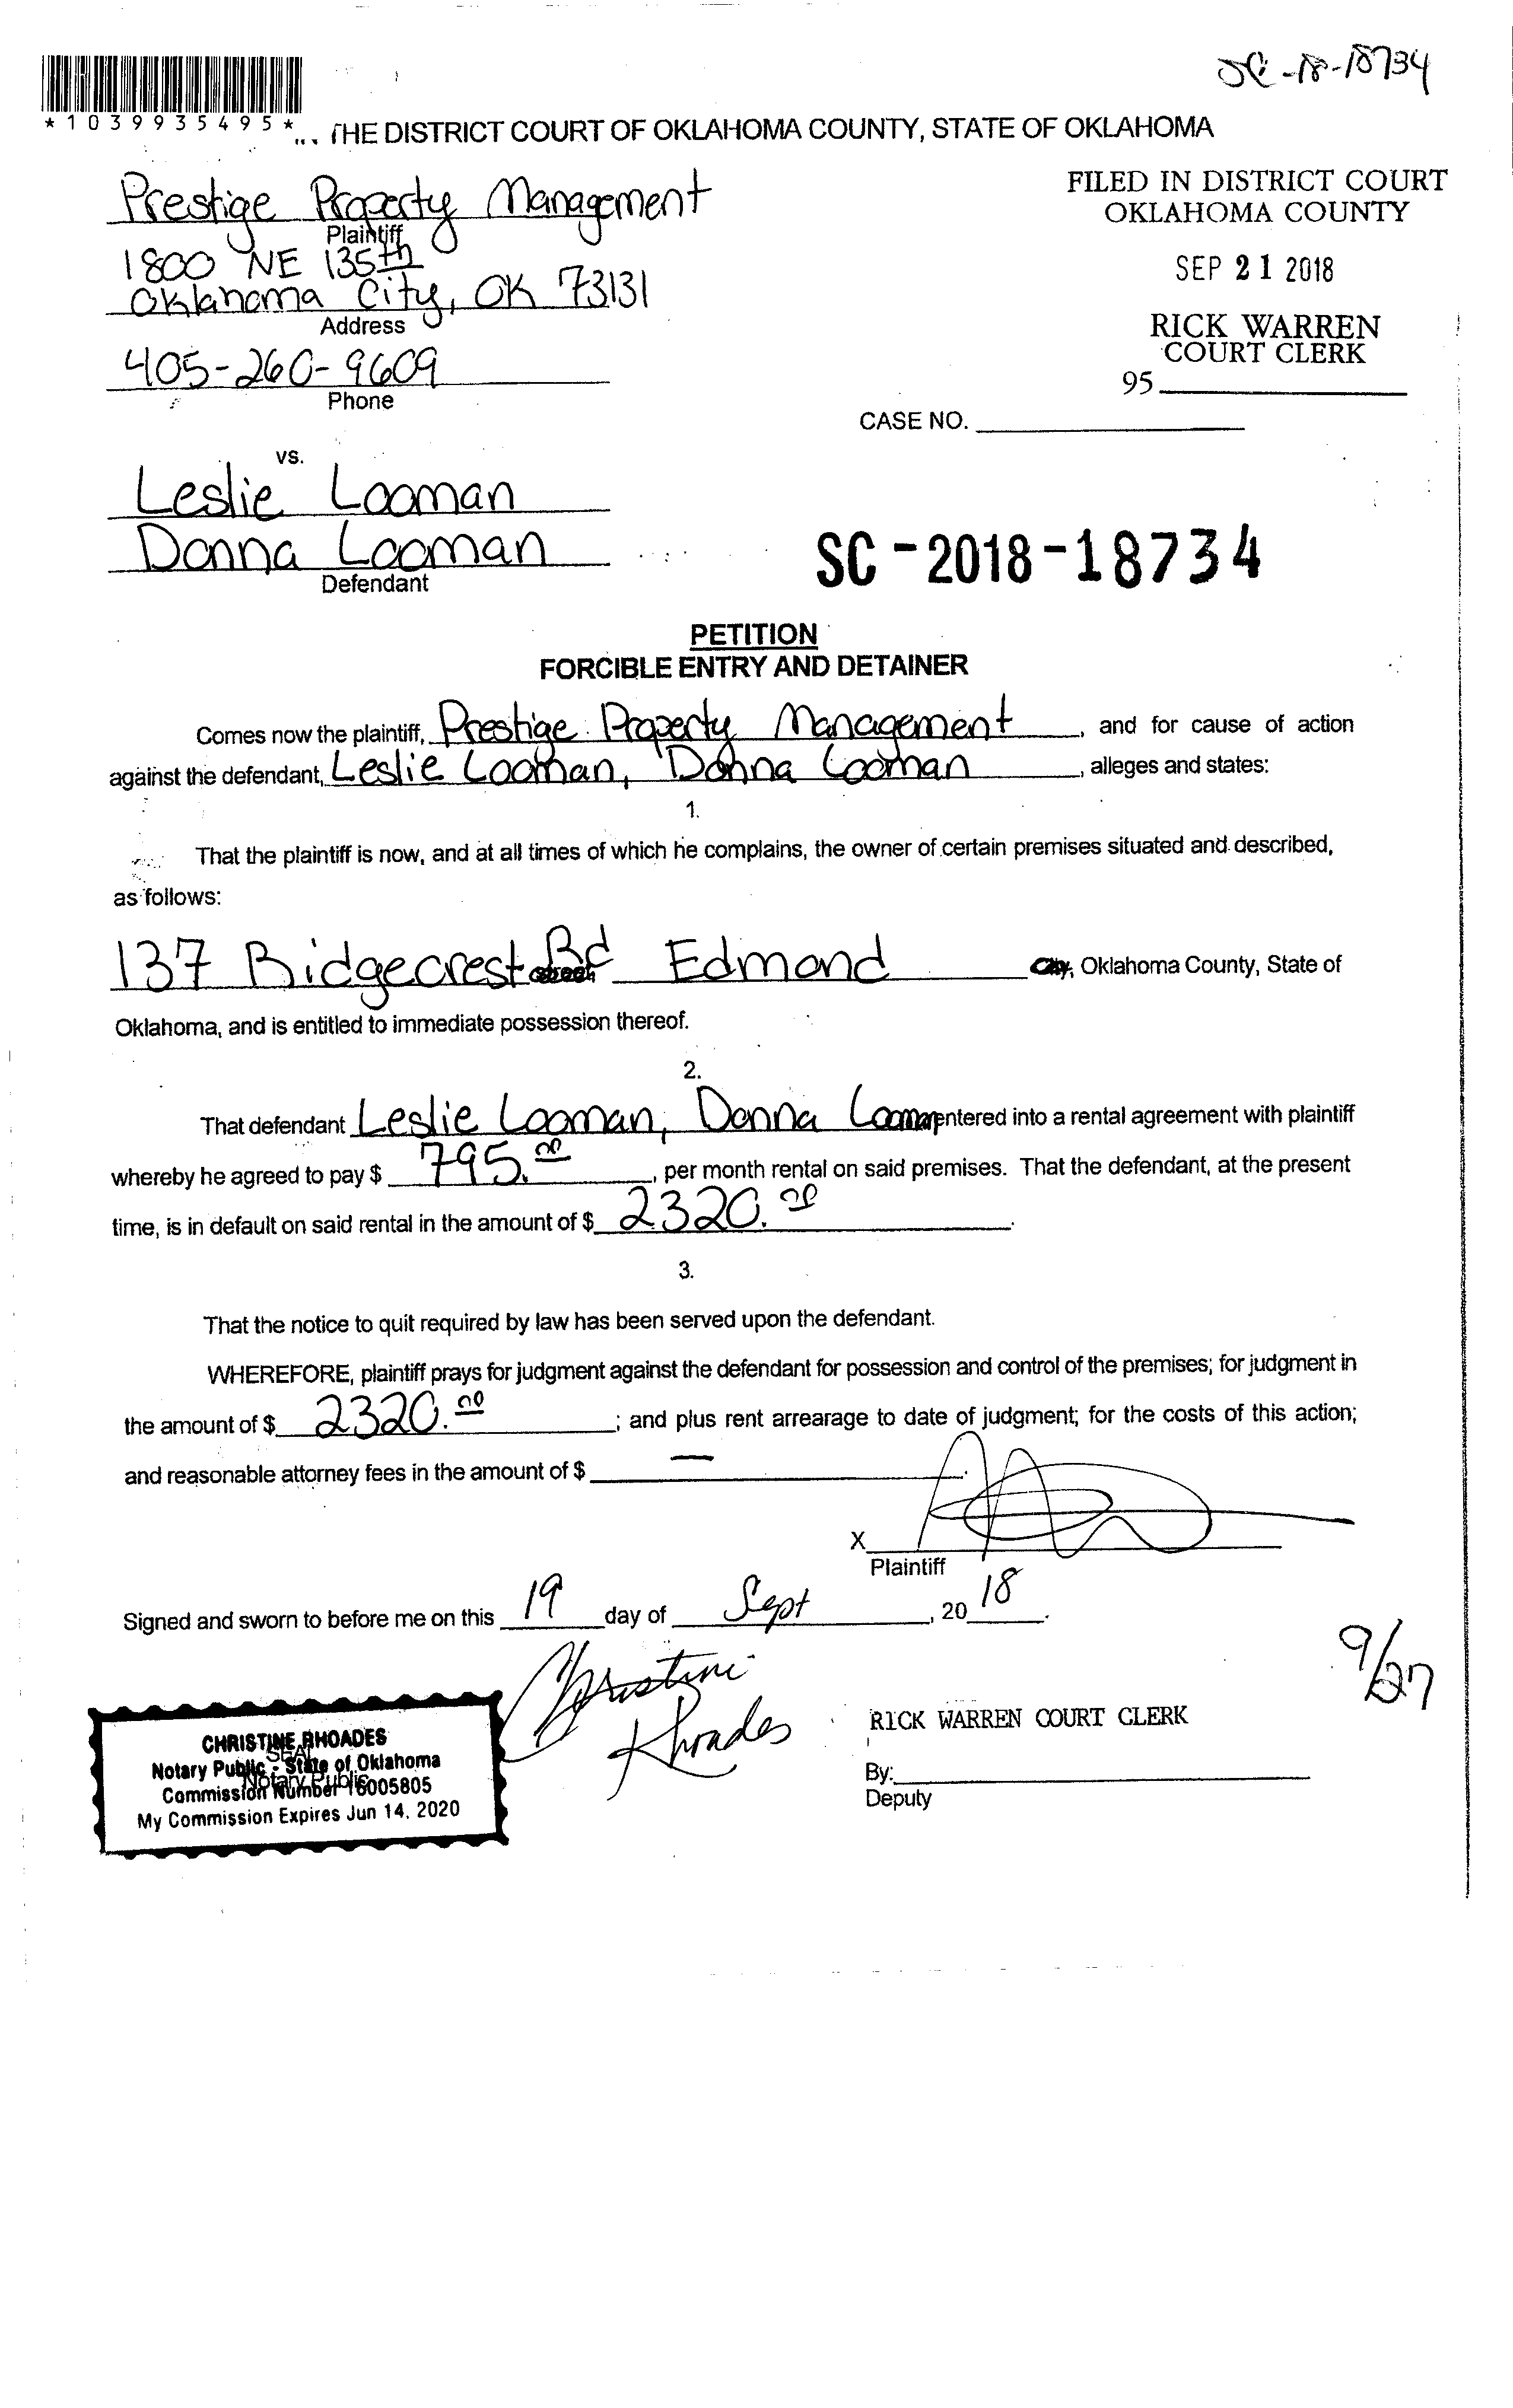 SC-18-18734
*1039935495*
THE DISTRICT COURT OF OKLAHOMA COUNTY, STATE OF OKLAHOMA
Prestige Property Management
Plaintiff
1800 NE 135th
Oklahoma City, OK 73131
Address
405-260-9609
Phone
FILED IN DISTRICT COURT
OKLAHOMA COUNTY
SEP 21 2018
RICK WARREN
COURT CLERK
95
CASE NO.
vs.
Leslie Looman
Donna Looman
Defendant
SC-2018-18734
PETITION
FORCIBLE ENTRY AND DETAINER
Comes now the plaintiff, Prestige Property Management, and for cause of action
against the defendant, Leslie Looman, Donna Looman, alleges and states:
1.
That the plaintiff is now, and at all times of which he complains, the owner of certain premises situated and described,
as follows:
137 Ridgecrest Rd Edmond, Oklahoma County, State of
Oklahoma, and is entitled to immediate possession thereof.
2.
That defendant Leslie Looman, Donna Looman entered into a rental agreement with plaintiff
whereby he agreed to pay $ 795.00, per month rental on said premises. That the defendant, at the present
time, is in default on said rental in the amount of $ 2320.00.
3.
That the notice to quit required by law has been served upon the defendant.
WHEREFORE, plaintiff prays for judgment against the defendant for possession and control of the premises; for judgment in
the amount of $ 2320.00; and plus rent arrearage to date of judgment; for the costs of this action;
and reasonable attorney fees in the amount of $ —.
X
Plaintiff
Signed and sworn to before me on this 19 day of Sept, 2018.
Christine
Rhoades
9/27
CHRISTINE RHOADES
SEAL
Notary Public - State of Oklahoma
Notary Public
Commission Number 16005805
My Commission Expires Jun 14, 2020
RICK WARREN COURT CLERK
By:
Deputy